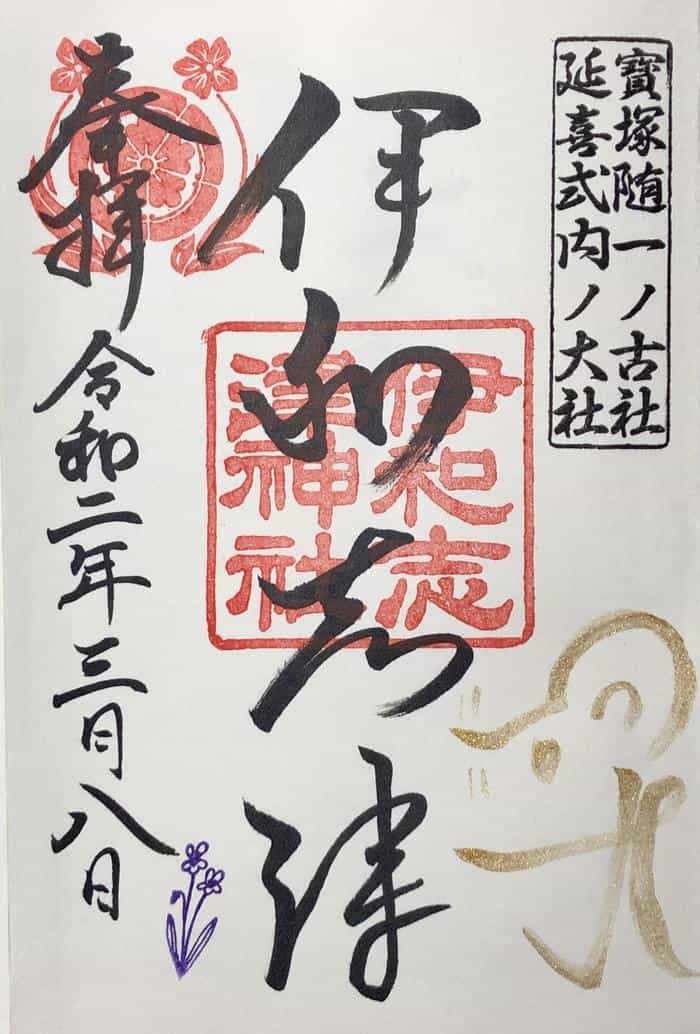 寶塚随一ノ古社
延喜式内ノ大社
伊和志津
伊和志
津神社
奉拝 令和二年三月八日